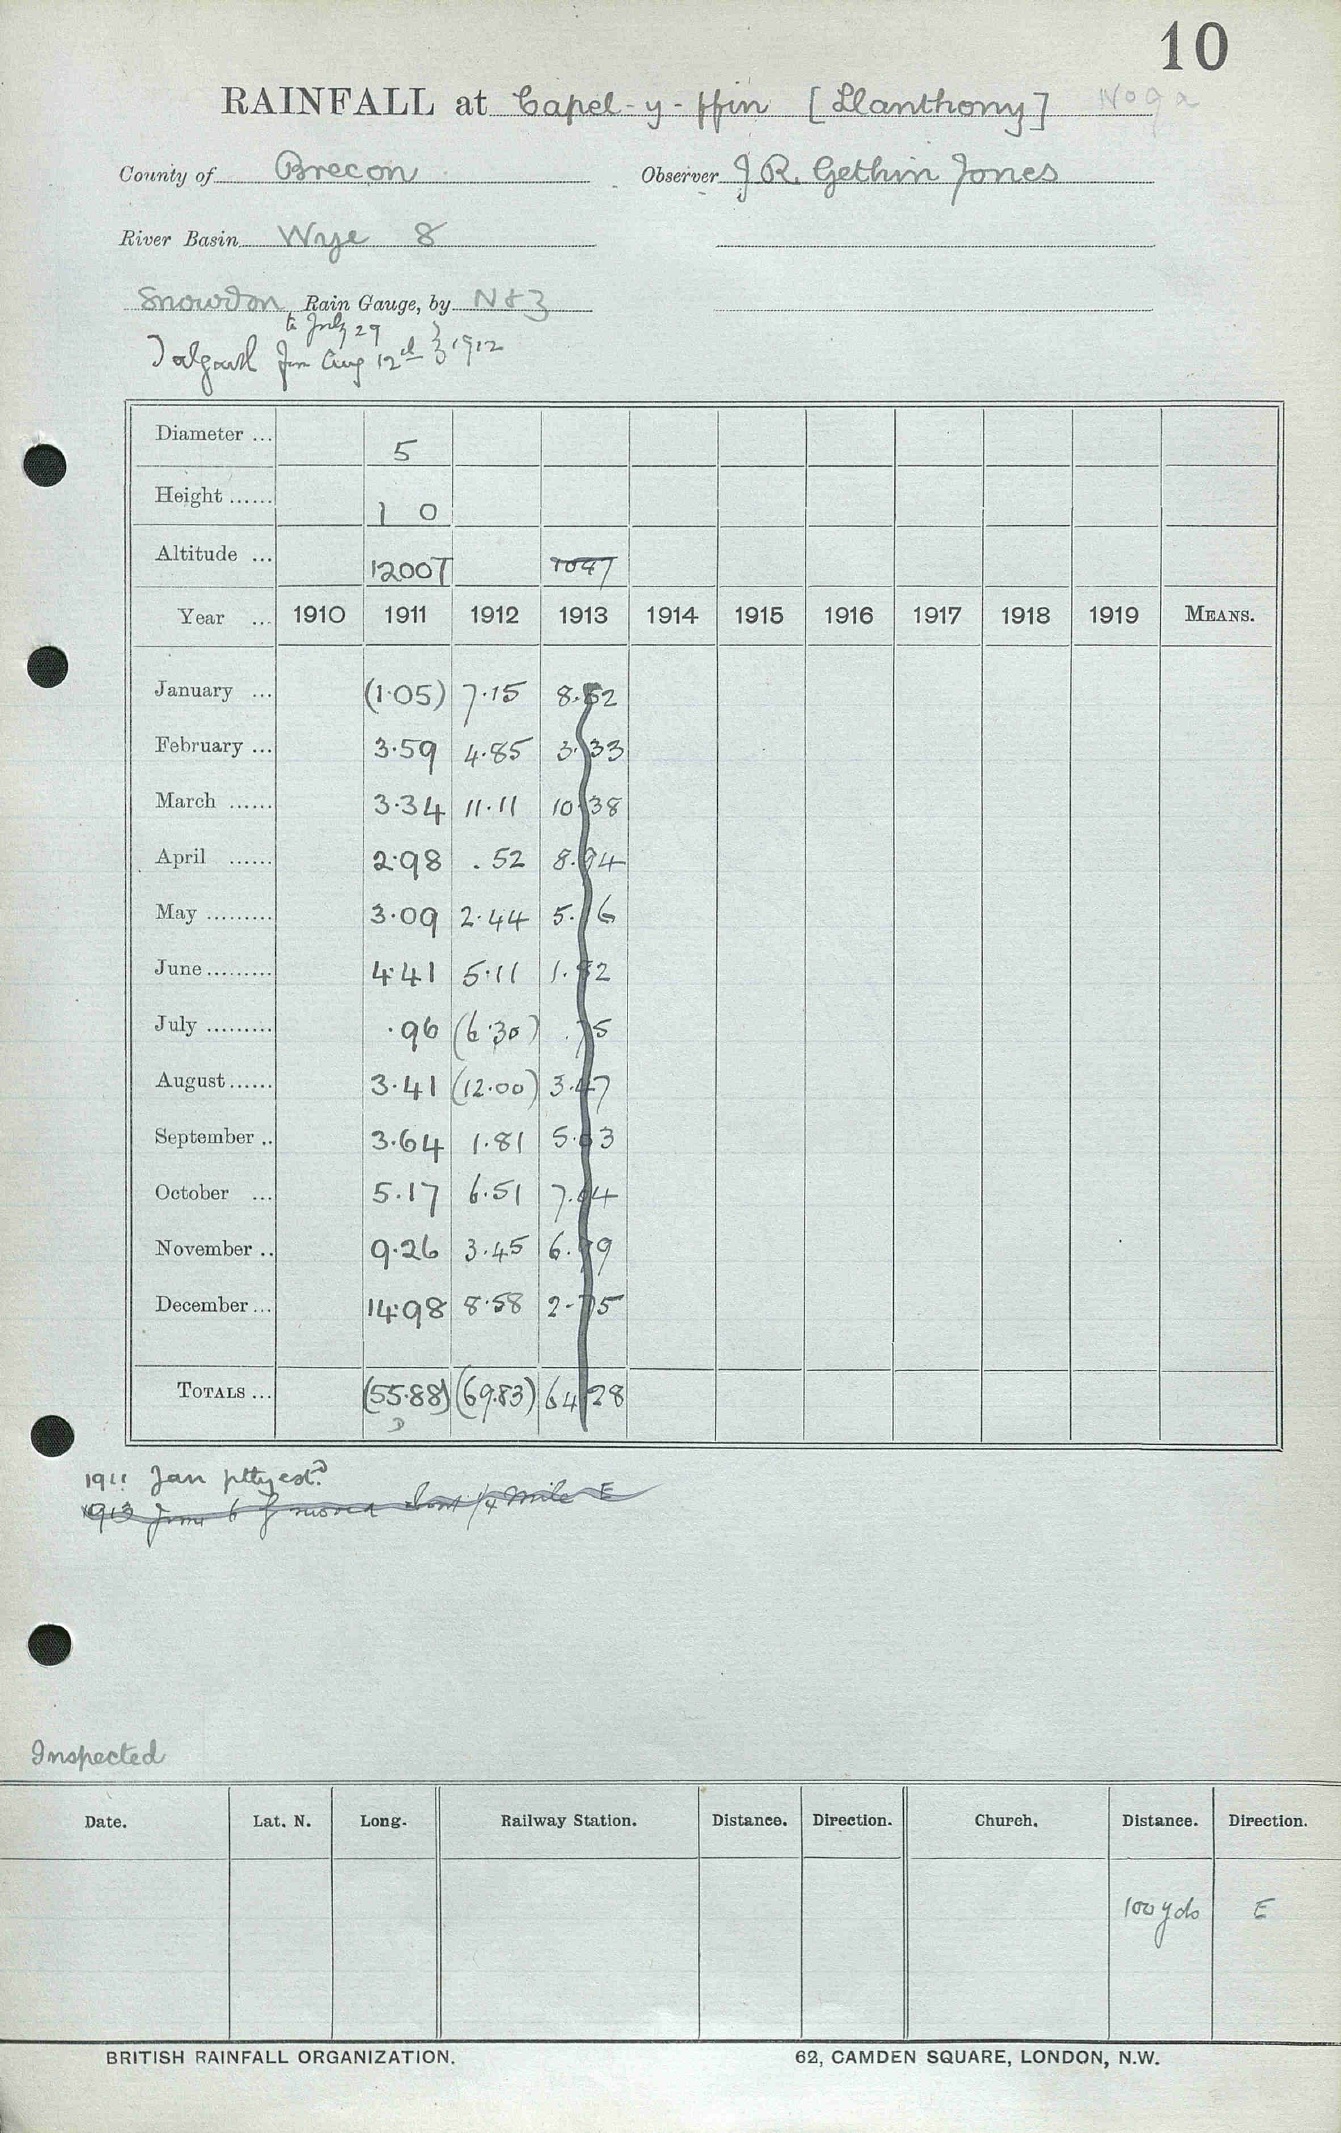 10
RAINFALL at Capel-y-ffin [Llanthony]
County of Brecon Observer J R. Gethin Jones
River Basin Wye 8
Snowdon Rain Gauge, by N & Z
to July 29
Talgarth from Aug 12th 1912
Diameter ... 5
Height ...... 1 0
Altitude ... 1200T 1047
Year ... 1910 1911 1912 1913 1914 1915 1916 1917 1918 1919 MEANS.
January ... (1.05) 7.15 8.52
February ... 3.59 4.85 3.33
March ...... 3.34 11.11 10.38
April ...... 2.98 .52 8.94
May ......... 3.09 2.44 5. 6
June ......... 4.41 5.11 1. 2
July ......... .96 (6.30) .75
August ...... 3.41 (12.00) 3.47
September .. 3.64 1.81 5. 3
October ... 5.17 6.51 7. 4
November .. 9.26 3.45 6. 9
December ... 14.98 8.58 2.75
TOTALS ... (55.88) (69.83) 64.28
1911 Jan ptly estd
1913 June 6 moved about 1/4 mile E
Inspected
Date. Lat. N. Long. Railway Station. Distance. Direction. Church. Distance. Direction.
100 yds E
BRITISH RAINFALL ORGANIZATION. 62, CAMDEN SQUARE, LONDON, N.W.